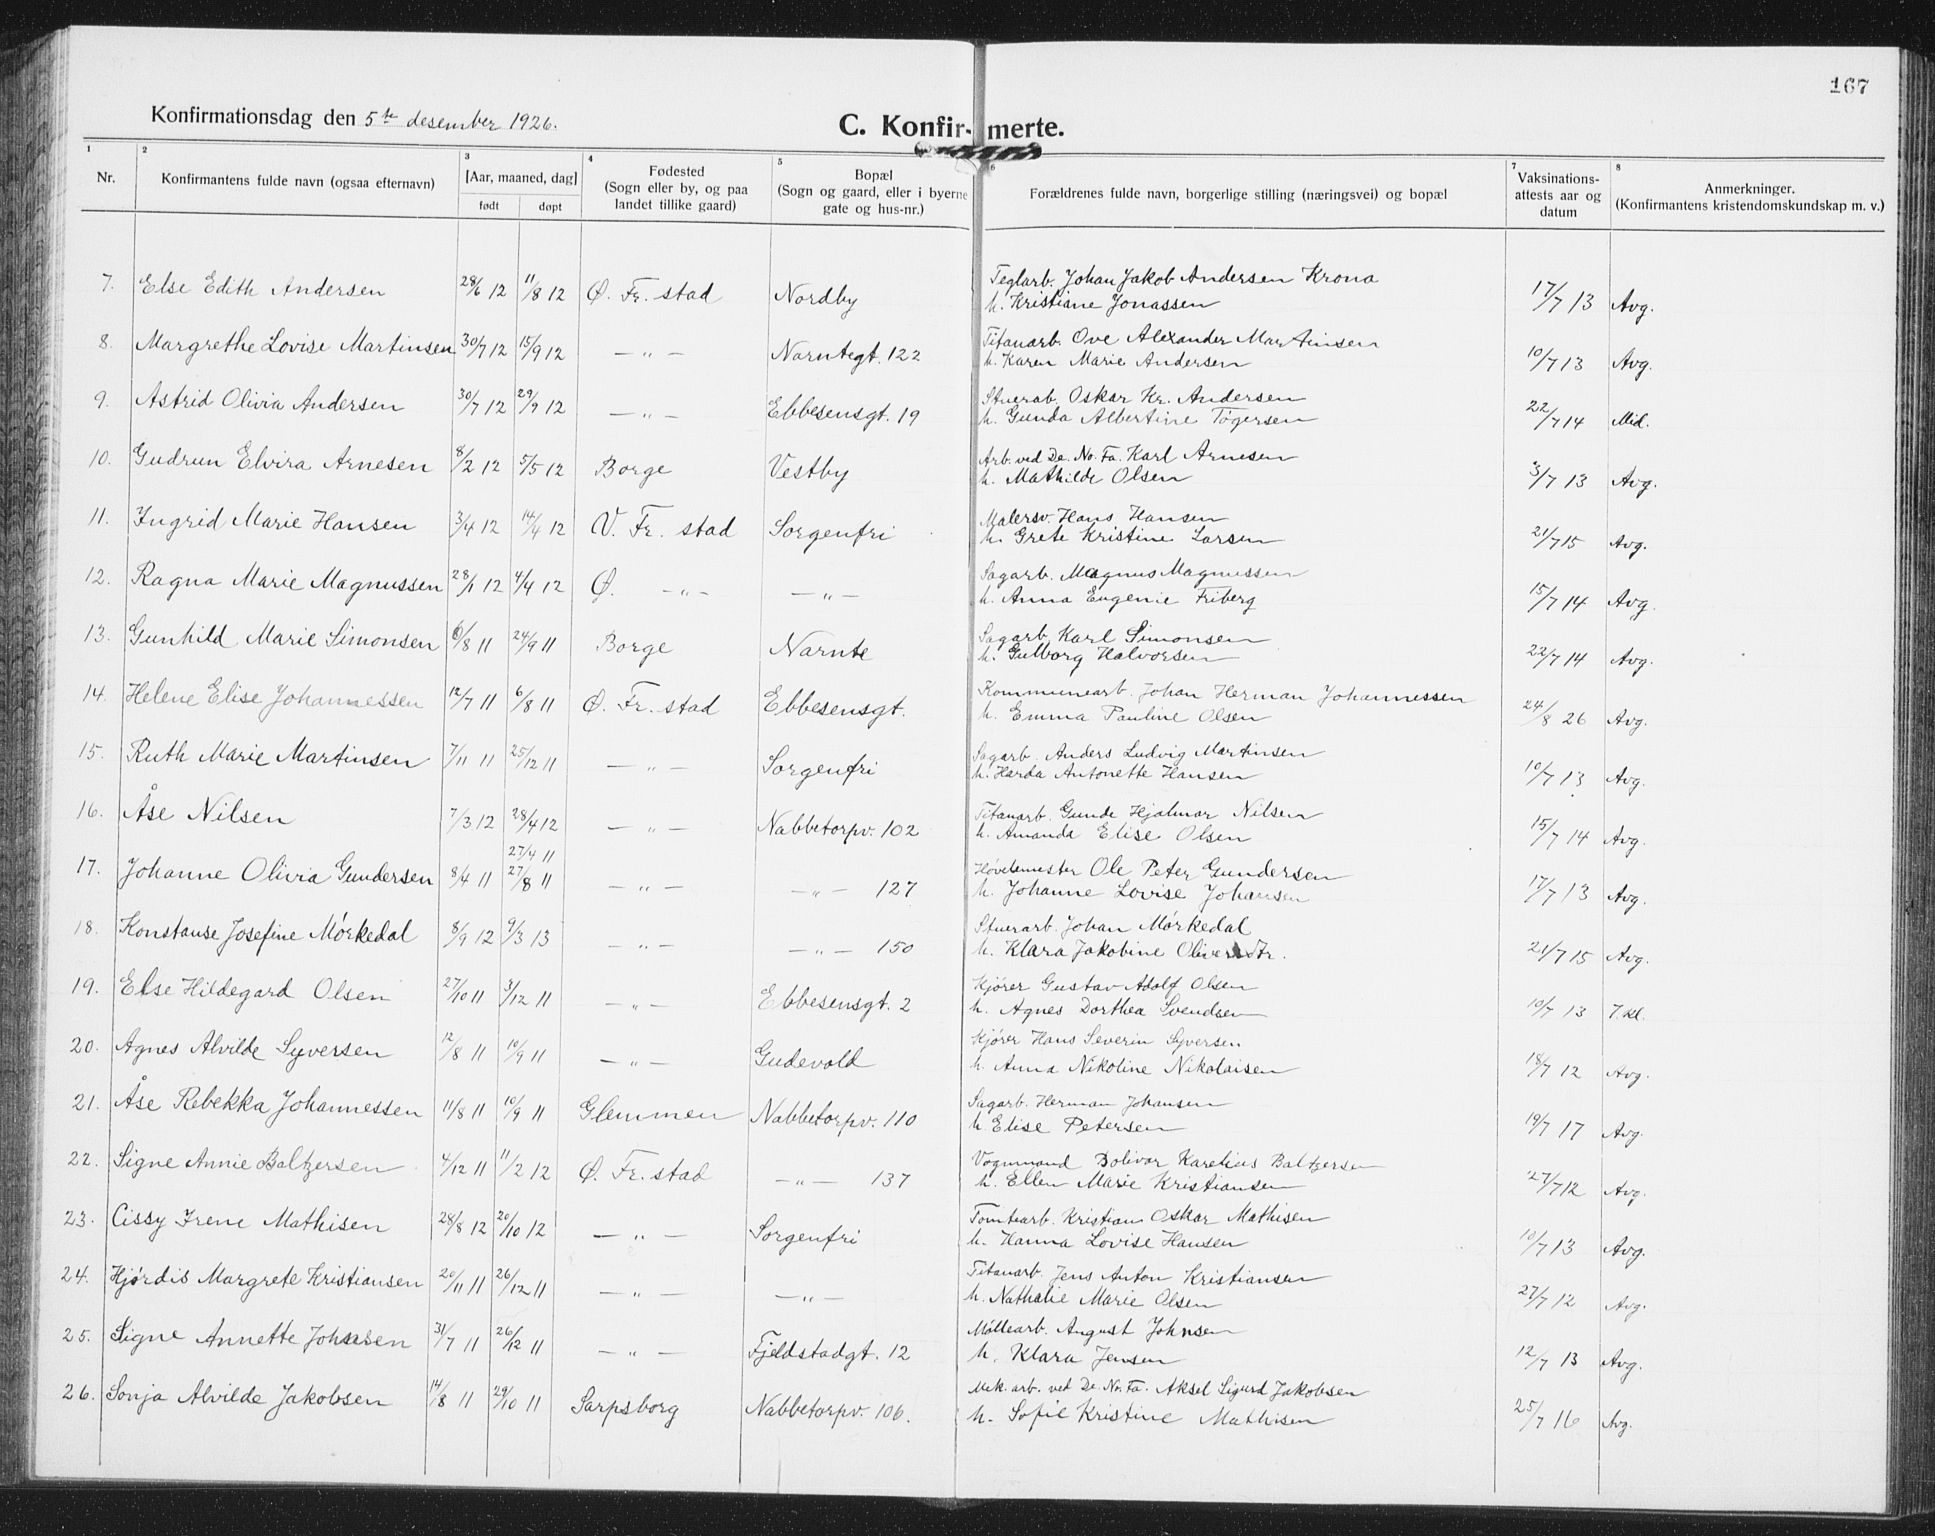 167
Konfirmationsdag den 5te desember 1926.
C. Konfir- merte.
1 2 3 4 5 6 7 8
Nr. Konfirmantens fulde navn (ogsaa efternavn) [Aar, maaned, dag] født døpt Fødested (Sogn eller by, og paa landet tillike gaard) Bopæl (Sogn og gaard, eller i byerne gate og hus-nr.) Forældrenes fulde navn, borgerlige stilling (næringsvei) og bopæl Vaksinations-attests aar og datum Anmerkninger. (Konfirmantens kristendomskundskap m. v.)
7. Else Edith Andersen 28/6 12 11/8 12 Ø. Fr. stad Nordby Teglarb. Johan Jakob Andersen Krona
h. Kristiane Jonassen 17/7 13 Avg.
8. Margrethe Lovise Martinsen 30/7 12 15/9 12 — " — Narntegt. 122 Titanarb. Ove Alexander Martinsen
h. Karen Marie Andersen 10/7 13 Avg.
9. Astrid Olivia Andersen 30/7 12 29/9 12 — " — Ebbesensgt. 19 Stuerab. Oskar Kr. Andersen
h. Gunda Albertine Tøgersen 22/7 14 Mid.
10. Gudrun Elvira Arnesen 8/2 12 5/5 12 Borge Vestby Arb. ved De. No. Fa. Karl Arnesen
h. Mathilde Olsen 3/7 13 Avg.
11. Ingrid Marie Hansen 3/4 12 14/4 12 V. Fr. stad Sorgenfri Malersv. Hans Hansen
h. Grete Kristine Larsen 21/7 15 Avg.
12. Ragna Marie Magnussen 28/1 12 4/4 12 Ø. — " — — " — Sagarb. Magnus Magnussen
h. Anna Eugenie Friberg 15/7 14 Avg.
13. Gunhild Marie Simonsen 6/8 11 24/9 11 Borge Narnte Sagarb. Karl Simonsen
h. Gulborg Halvorsen 22/7 14 Avg.
14. Helene Elise Johannessen 12/7 11 6/8 11 Ø. Fr. stad Ebbesensgt. Kommunearb. Johan Herman Johannessen
h. Emma Pauline Olsen 24/8 26 Avg.
15. Ruth Marie Martinsen 7/11 11 25/12 11 — " — Sorgenfri Sagarb. Anders Ludvig Martinsen
h. Harda Antonette Hansen 10/7 13 Avg.
16. Åse Nilsen 7/3 12 28/4 12 — " — Nabbetorpv. 102 Titanarb. Gunde Hjalmar Nilsen
h. Amanda Elise Olsen 15/7 14 Avg.
27/4 11
17. Johanne Olivia Gundersen 8/4 11 27/8 11 — " — — " — 127 Høvelmester Ole Peter Gundersen
h. Johanne Lovise Johansen 17/7 13 Avg.
18. Konstanse Josefine Mørkedal 8/9 12 9/3 13 — " — — " — 150 Stuerarb. Johan Mørkedal
h. Klara Jakobine Oliversdtr. 21/7 15 Avg.
19. Else Hildegard Olsen 27/10 11 3/12 11 — " — Ebbesensgt. 2 Kjører Gustav Adolf Olsen
h. Agnes Dorthea Svendsen 10/7 13 7. kl.
20. Agnes Alvilde Syversen 12/8 11 10/9 11 — " — Gudevold Kjører Hans Severin Syversen
h. Anna Nikoline Nikolaisen 18/7 12 Avg.
21. Åse Rebekka Johannessen 11/8 11 10/9 11 Glemmen Nabbetorpv. 110 Sagarb. Herman Johansen
h. Elise Petersen 19/7 17 Avg.
22. Signe Annie Baltzersen 4/12 11 11/2 12 Ø. Fr. stad — " — 137 Vognmand Bolivar Karelius Baltzersen
h. Ellen Marie Kristiansen 27/7 12 Avg.
23. Cissy Irene Mathisen 28/8 12 20/10 12 — " — Sorgenfri Tomtearb. Kristian Oskar Mathisen
h. Hanna Lovise Hansen 10/7 13 Avg.
24. Hjørdis Margrete Kristiansen 20/11 11 26/12 11 — " — — " — Titanarb. Jens Anton Kristiansen
h. Nathalie Marie Olsen 27/7 12 Avg.
25. Signe Annette Johnsen 31/7 11 26/12 11 — " — Fjeldstadgt. 12 Møllearb. August Johnsen
h. Klara Jensen 12/7 13 Avg.
26. Sonja Alvilde Jakobsen 14/8 11 29/10 11 Sarpsborg Nabbetorpv. 106. Mek. arb. ved De. No. Fa. Aksel Sigurd Jakobsen
h. Sofie Kristine Mathisen 25/7 16 Avg.